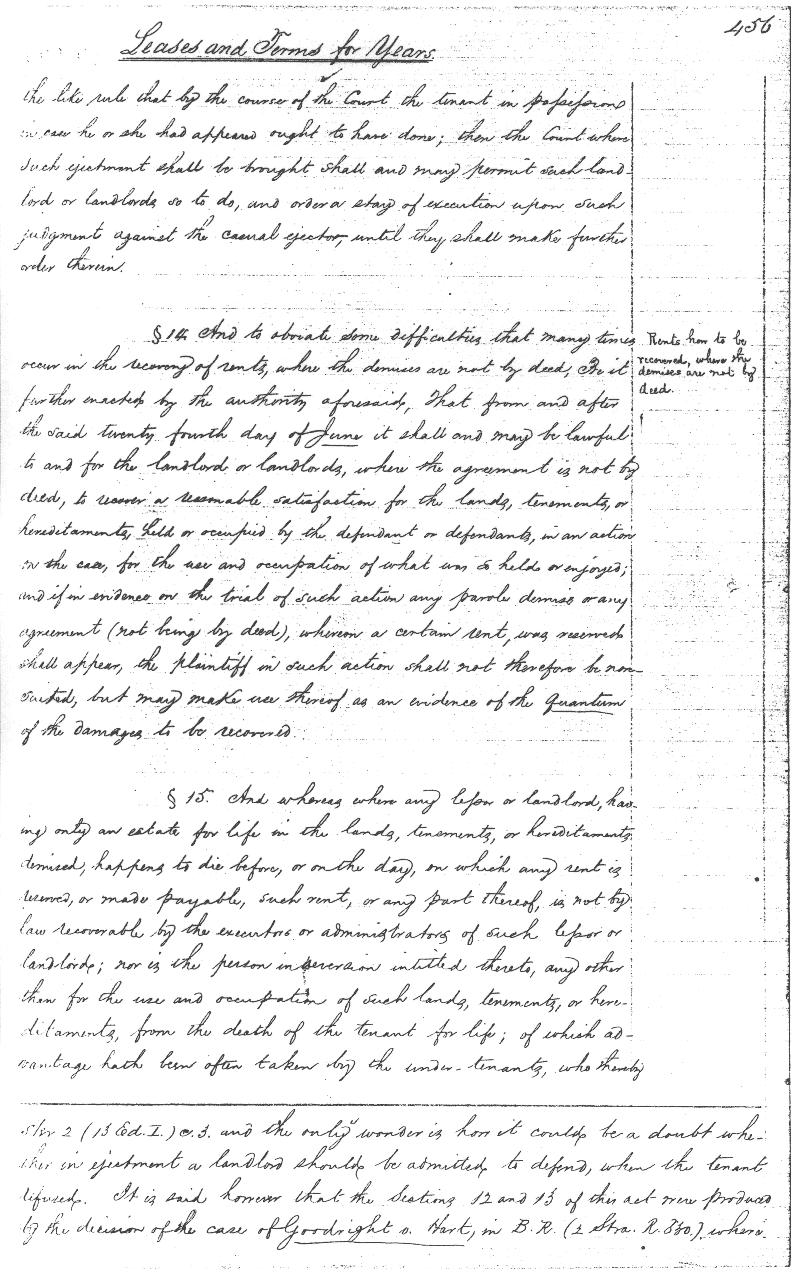 456
Leases and Terms for Years.
the like rule that by the course of the Court the tenant in possession
in case he or she had appeared ought to have done; then the Court where
such ejectment shall be brought shall and may permit such land-
lord or landlords so to do, and order a stay of execution upon such
judgment against the casual ejector, until they shall make further
order therein.
§ 14. And to obviate some difficulties that many times
occur in the recovery of rents, where the demises are not by deed, Be it
further enacted by the authority aforesaid, That from and after
the said twenty fourth day of June it shall and may be lawful
to and for the landlord or landlords, where the agreement is not by
deed, to recover a reasonable satisfaction for the lands, tenements, or
hereditaments, held or occupied by the defendant or defendants, in an action
on the case, for the use and occupation of what was so held or enjoyed;
and if in evidence on the trial of such action any parole demise or any
agreement (not being by deed), whereon a certain rent, was reserved
shall appear, the plaintiff in such action shall not therefore be non-
suited, but may make use thereof as an evidence of the Quantum
of the damages to be recovered.
Rents how to be
recovered, where the
demises are not by
deed.
§ 15. And whereas where any lessor or landlord, hav-
ing only an estate for life in the lands, tenements, or hereditaments
demised, happens to die before, or on the day, on which any rent is
reserved, or made payable, such rent, or any part thereof, is not by
law recoverable by the executors or administrators of such lessor or
landlords; nor is the person in reversion intitled thereto, any other
than for the use and occupation of such lands, tenements, or here-
ditaments, from the death of the tenant for life; of which ad-
vantage hath been often taken by the under-tenants, who thereby
2 (13 Ed. I.) c. 3. and the only wonder is how it could be a doubt whe-
ther in ejectment a landlord should be admitted to defend, when the tenant
refused. It is said however that the Sections 12 and 13 of this act were produced
by the decision of the case of Goodright v. Hart, in B. R. (2 Stra. R. 830.) where